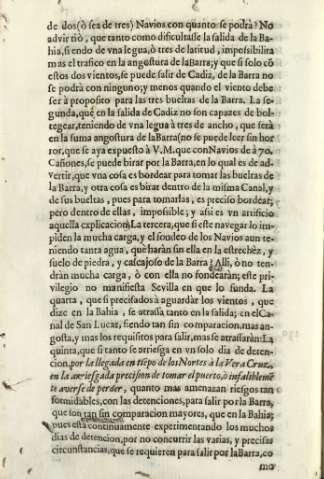 de dos(ò sea de tres) Navios con quanto se podrà? No
advirtiò, que tanto como dificultasse la salida de la Ba-
hia, siendo de vna legua, ò tres de latitud, impossibilita
mas el trafico en la angostura de la Barra; y que si solo cõ
estos dos vientos, se puede salir de Cadiz, de la Barra no
se podrà con ninguno; y menos quando el viento debe
ser à proposito para las tres bueltas de la Barra. La se-
gunda, què en la salida de Cadiz no son capazes de bol-
tegear, teniendo de vna legua à tres de ancho, que serà
en la suma angostura de la Barra (no se puede leer sin hor
ror, que se aya expuesto à V. M. que con Navios de à 70.
Cañones, se puede birar por la Barra, en lo qual es de ad-
vertir, que vna cosa es bordear para tomar las bueltas de
la Barra, y otra cosa es birar dentro de la misma Canal, y
de sus bueltas, pues para tomarlas, es preciso bordear;
pero dentro de ellas, imposible; y assi es vn artificio
aquella explicacion) La tercera, que si este navegar lo im-
piden la mucha carga, y el sondeo de los Navios aun te-
niendo tanta agua, què haràn sin ella en la estrechèz, y
suelo de piedra, y cascajoso de la Barra? Alli, ò no ten-
dràn mucha carga, ò con ella no fondearàn; este pri-
vilegio no manifiesta Sevilla en que lo funda. La
quarta, que si precisados à aguardàr los vientos, que
dize en la Bahia, se atrasa tanto en la salida; en el Ca-
nal de San Lucar, siendo tan sin comparacion, mas an-
gosta, y mas los requisitos para salir, mas se atrasaràn. La
quinta, que si tanto se arriesga en vn solo dia de deten-
cion, por la llegada en tiẽpo de los Nortes à la Vera Cruz,
en la arriesgada precision de tomar el puerto, ò infaliblemẽ
te averse de perder, quanto mas amenazan riesgos tan
formidables, con las detenciones, para salir por la Barra,
que son tan sin comparacion mayores, que en la Bahia;
pues està continuamente experimentando los muchos
dias de detencion, por no concurrir las varias, y precisas
circunstancias, que se requieren para salir por la Barra, co
mo